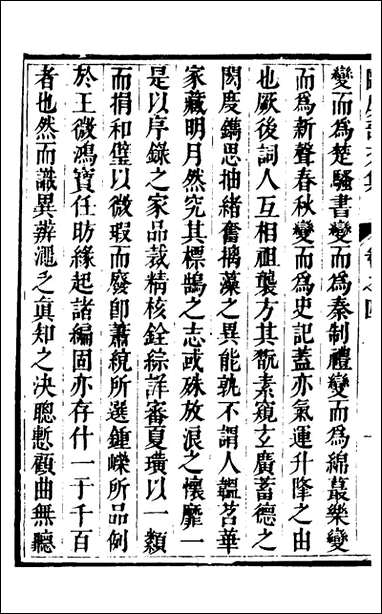 文集 卷之四
變而爲楚騷書變而爲秦制禮變而爲綿蕞樂變
而爲新聲春秋變而爲史記蓋亦氣運升降之由
也厥後詞人互相祖襲方其翫素窺玄廣蓄德之
閎慶鐫思抽緒奮摛藻之異能孰不謂人韞苕華
家藏明月然究其標鵠之志或殊放浪之懷靡一
是以序錄之家品裁精核銓綜詳審夏璜以一類
而捐和璧以微瑕而廢卽蕭統所選鍾嶸所品例
於王微鴻寶任昉緣起諸編固亦存什一于千百
者也然而識異辨澠之眞知之决聰慙顧曲無聽